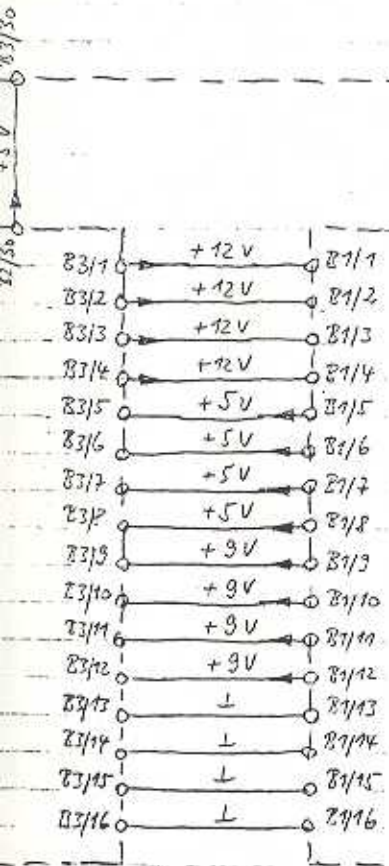 B3/30
+5V
B2/30
B3/1 +12V B1/1
B3/2 +12V B1/2
B3/3 +12V B1/3
B3/4 +12V B1/4
B3/5 +5V B1/5
B3/6 +5V B1/6
B3/7 +5V B1/7
B3/8 +5V B1/8
B3/9 +9V B1/9
B3/10 +9V B1/10
B3/11 +9V B1/11
B3/12 +9V B1/12
B3/13 ⊥ B1/13
B3/14 ⊥ B1/14
B3/15 ⊥ B1/15
B3/16 ⊥ B1/16